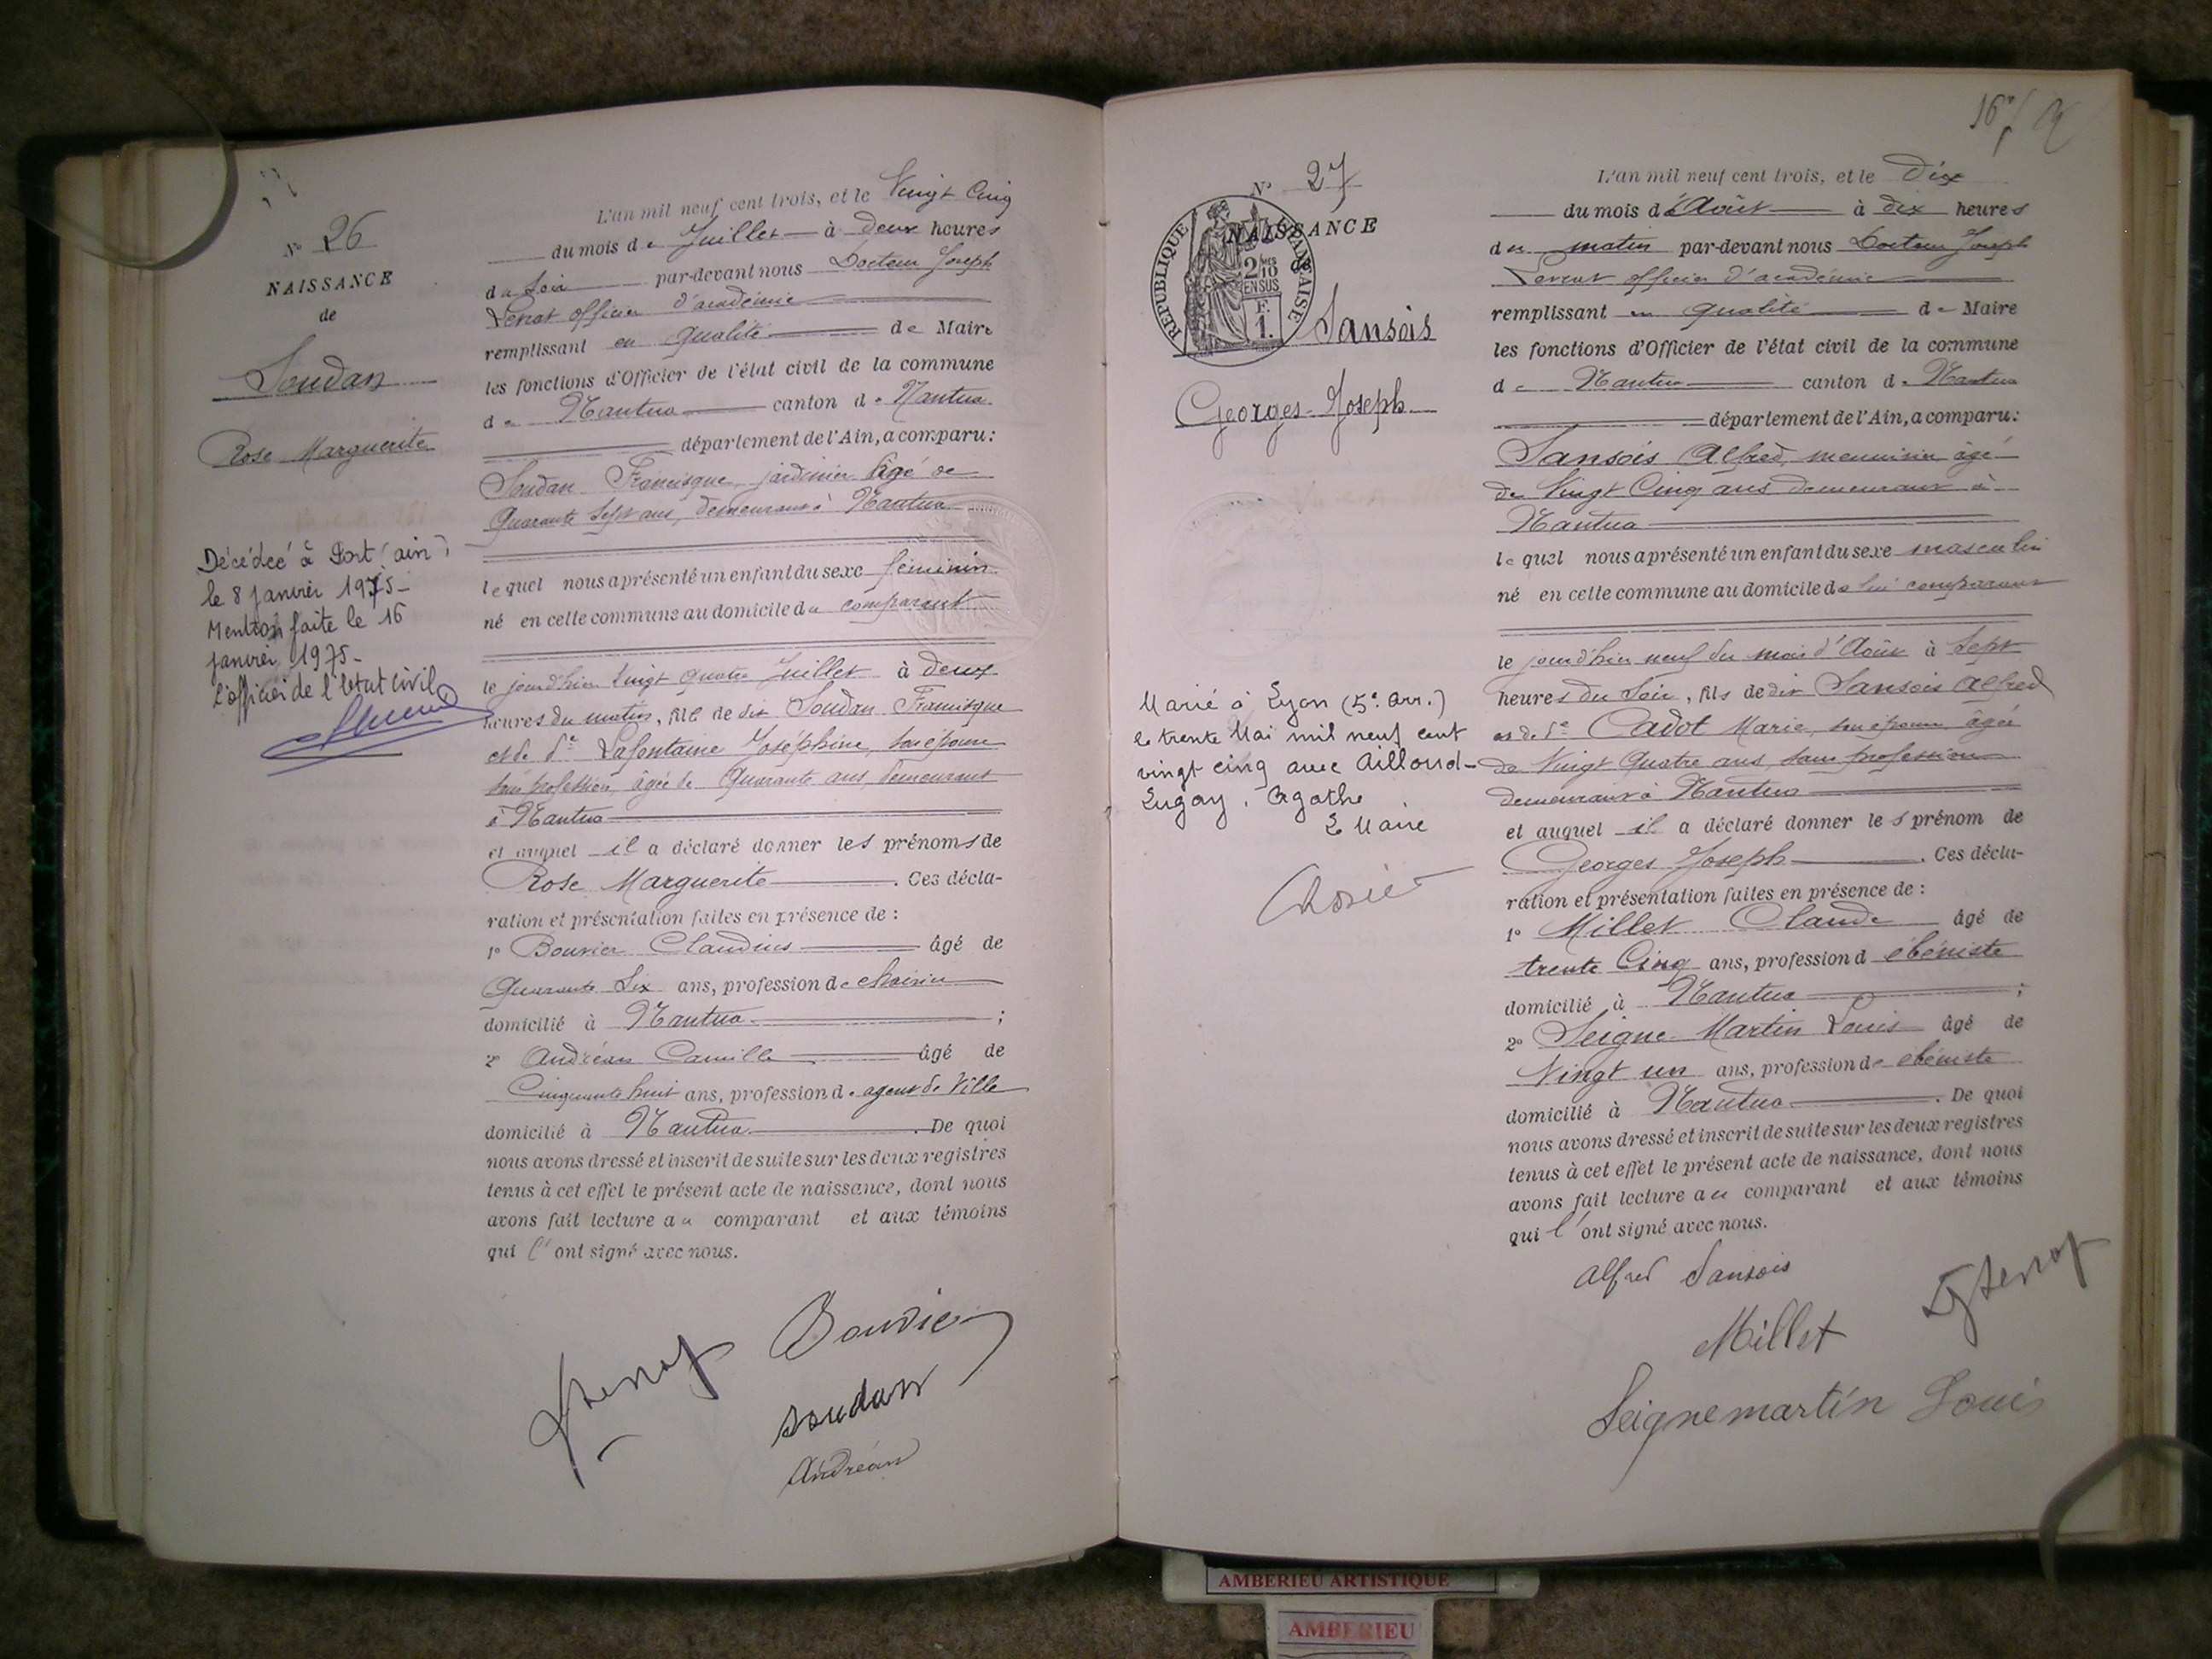 N° 26
NAISSANCE
de
Soudan
Rose Marguerite
Décédée à Port (ain)
le 8 janvier 1975-
Mention faite le 16
janvier 1975-
l'officier de l'état civil
L'an mil neuf cent trois, et le Vingt Cinq
du mois de Juillet à deux heures
du soir par-devant nous Docteur Joseph
officier d'académie
remplissant en qualité de Maire
les fonctions d'Officier de l'état civil de la commune
de Nantua canton de Nantua
département de l'Ain, a comparu:
Soudan Francisque jardinier âgé de
Quarante Sept ans, demeurant à Nantua
lequel nous a présenté un enfant du sexe féminin
né en cette commune au domicile du comparant
le jourd'hier Vingt quatre Juillet à deux
heures du matin, fille de dit Soudan Francisque
et de de Lafontaine Joséphine, son épouse
sans profession, âgée de Quarante ans, demeurant
à Nantua
et auquel il a déclaré donner les prénoms de
Rose Marguerite . Ces décla-
ration et présentation faites en présence de :
1° Bouvier Claudius âgé de
Quarante Six ans, profession de
domicilié à Nantua ;
2° Andréan Camille âgé de
Cinquante huit ans, profession d. agent de Ville
domicilié à Nantua . De quoi
nous avons dressé et inscrit de suite sur les deux registres
tenus à cet effet le présent acte de naissance, dont nous
avons fait lecture au comparant et aux témoins
qui l'ont signé avec nous.
Bouvier
Soudan
Andréan
16
N° 27
NAISSANCE
de
REPUBLIQUE FRANÇAISE
2/10 MES
EN SUS
F.
1.
Sansois
Georges-Joseph
Marié à Lyon (5e arr.)
le trente Mai mil neuf cent
vingt cinq avecAilloud-
Agathe
Le Maire
L'an mil neuf cent trois, et le Dix
du mois d'Août à dix heures
du matin par-devant nous Docteur Joseph
officier d'académie
remplissant en qualité de Maire
les fonctions d'Officier de l'état civil de la commune
de Nantua canton de Nantua
département de l'Ain, a comparu:
Sansois Alfred, menuisier âgé
de Vingt Cinq ans demeurant à
Nantua
lequel nous a présenté un enfant du sexe masculin
né en cette commune au domicile de lui comparant
le jourd'hier neuf du mois d'Août à Sept
heures du Soir, fils de dit Sansois Alfred
et de de Cadot Marie, son épouse âgée
de Vingt Quatre ans, sans profession
demeurant à Nantua
et auquel il a déclaré donner les prénom de
Georges Joseph . Ces décla-
ration et présentation faites en présence de :
1° Millet Claude âgé de
trente Cinq ans, profession d ébéniste
domicilié à Nantua ;
2° Seigne-Martin Louis âgé de
Vingt un ans, profession de ébéniste
domicilié à Nantua . De quoi
nous avons dressé et inscrit de suite sur les deux registres
tenus à cet effet le présent acte de naissance, dont nous
avons fait lecture au comparant et aux témoins
qui l'ont signé avec nous.
Alfred Sansois
Millet
Seignemartin Louis
AMBERIEU ARTISTIQUE
AMBERIEU